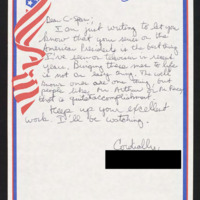 Dear C-Span;
I am just writing to let you
know that your series on the
American Presidents is the best thing
I've seen on television in recent
years. Bringing these men to life
is not an easy thing. The well
know ones are one thing, but
people like Mr. Arthur &
that is quite accomplishment.
Keep up your excellent
work I'll be watching.
Cordially,